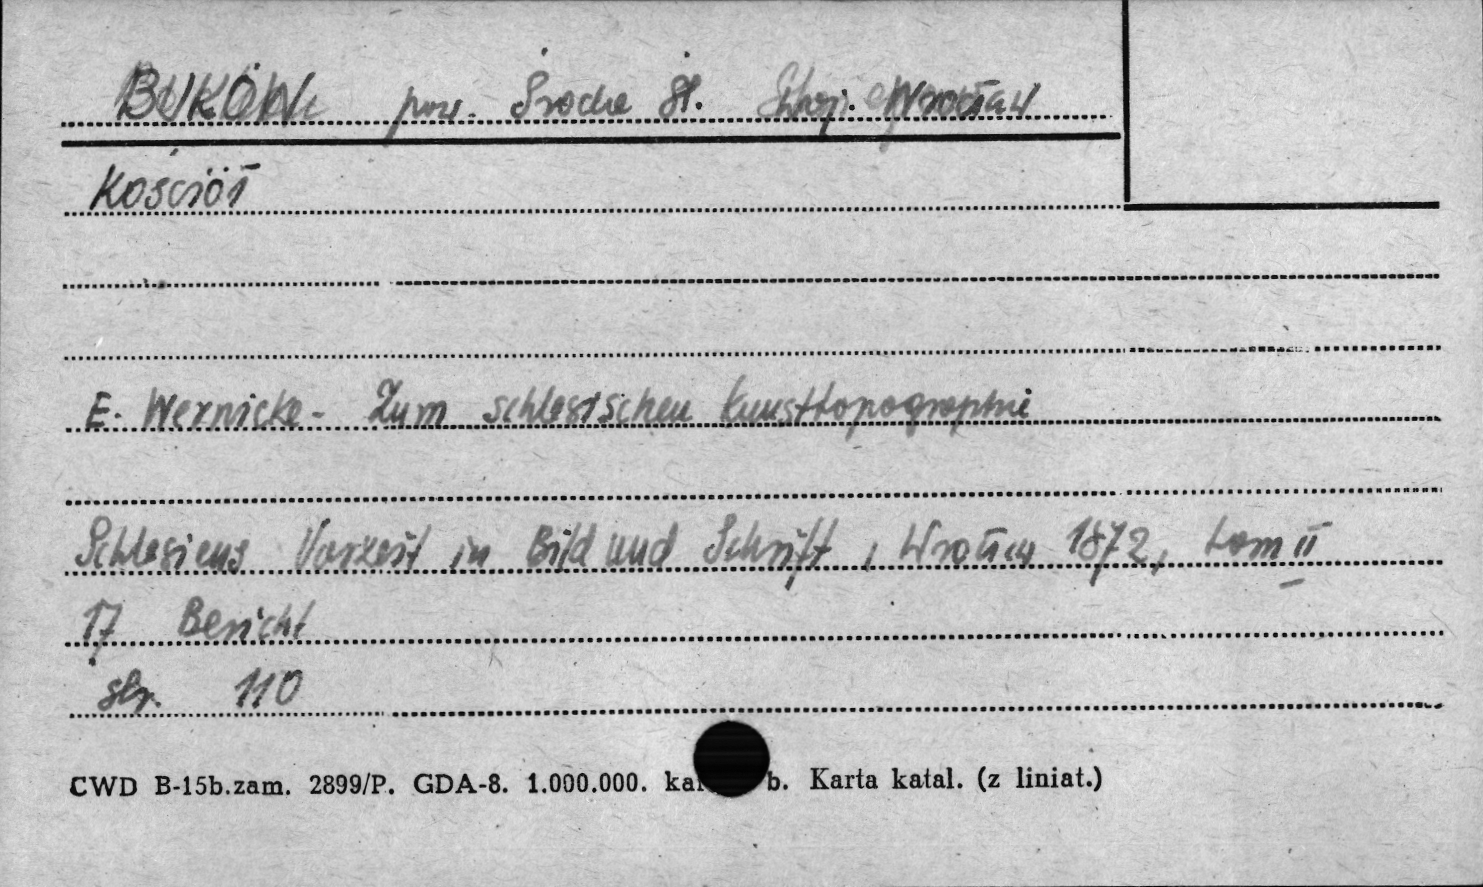 BUKÓW pow. Środa Śl. woj. Wrocław
Kościół
E. Wernicke - Zum schlesischen Kunsttopographie
Schlesiens Vorzeit in Bild und Schrift, Wrocław 1872, tom II
17 Bericht
str. 110
CWD B-15b.zam. 2899/P. GDA-8. 1.000.000. b. Karta katal. (z liniat.)